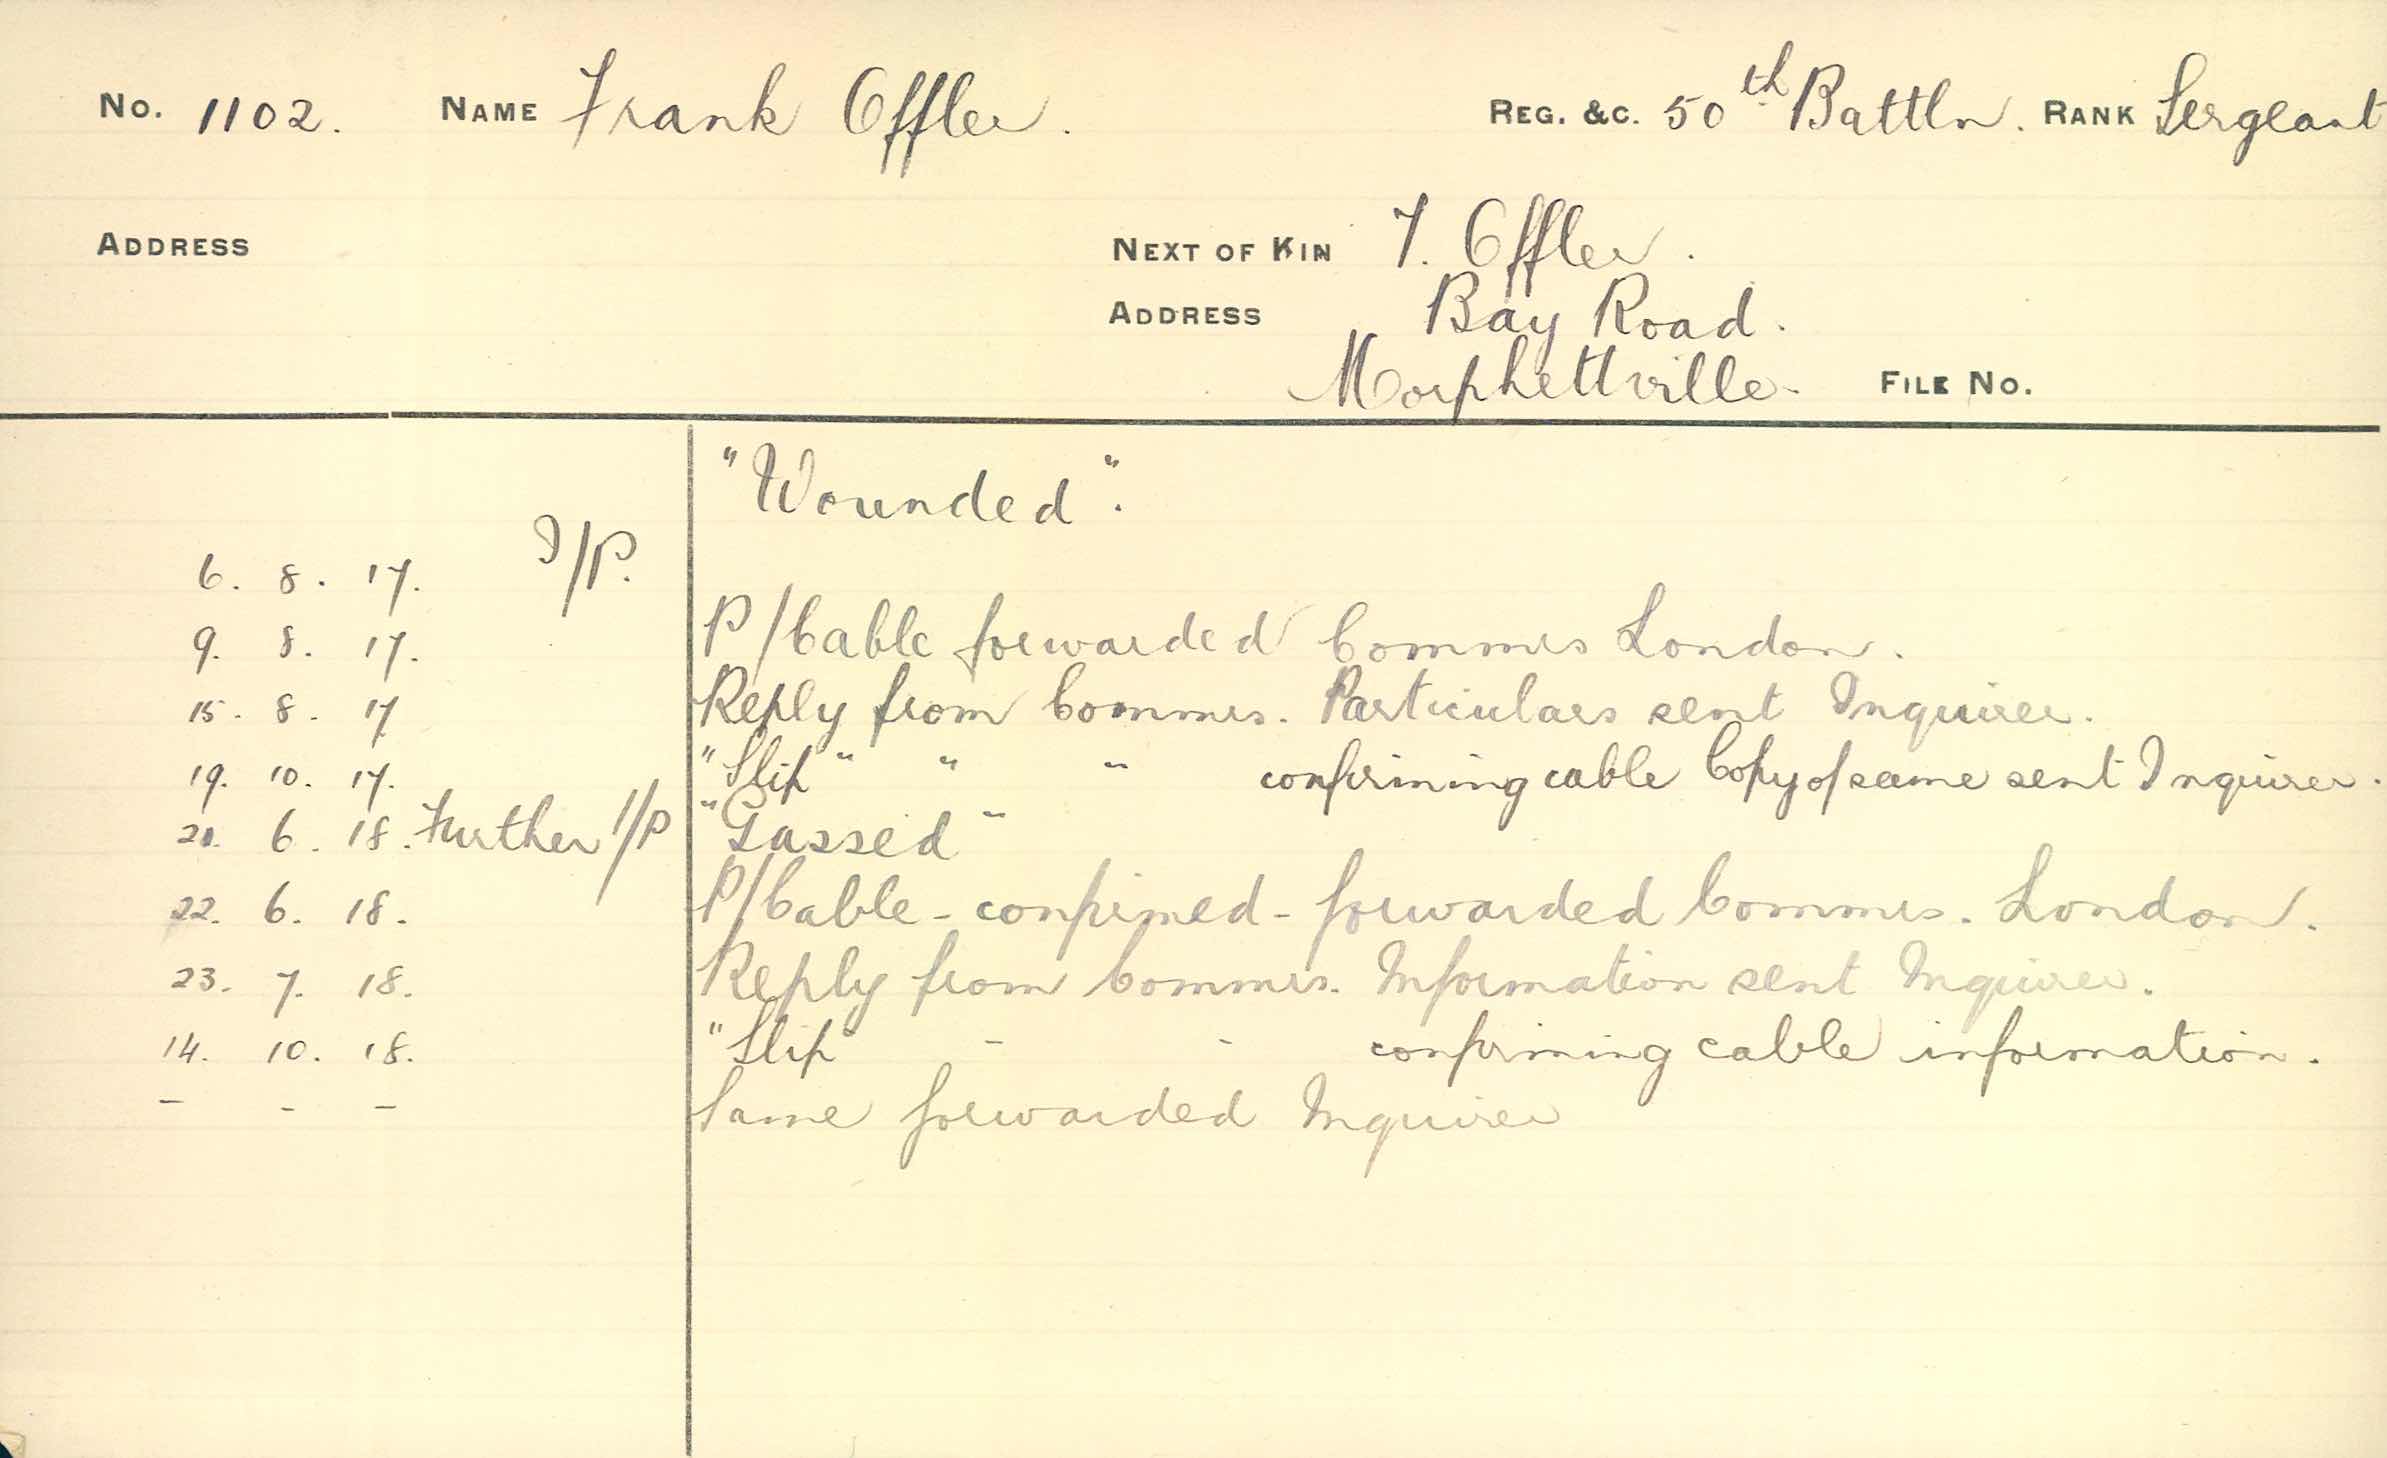 No. 1102. NAME Frank Offler. REG. &C. 50th Battln. RANK Sergeant
ADDRESS NEXT OF KIN F. Offler.
ADDRESS Bay Road.
Morphettville- FILE No.
"Wounded".
6. 8. 17. I/P.
9. 8. 17. P/Cable forwarded Commrs London.
15. 8. 17 Reply from Commrs. Particulars sent Inquirer.
19. 10. 17. "Slip" " " confirming cable Copy of same sent Inquirer.
20. 6. 18. Further I/P "Gassed"
22. 6. 18. P/Cable - confirmed - forwarded Commrs. London.
23. 7. 18. Reply from Commrs. Information sent Inquirer.
14. 10. 18. "Slip" - - confirming cable information.
- - - Same forwarded Inquirer